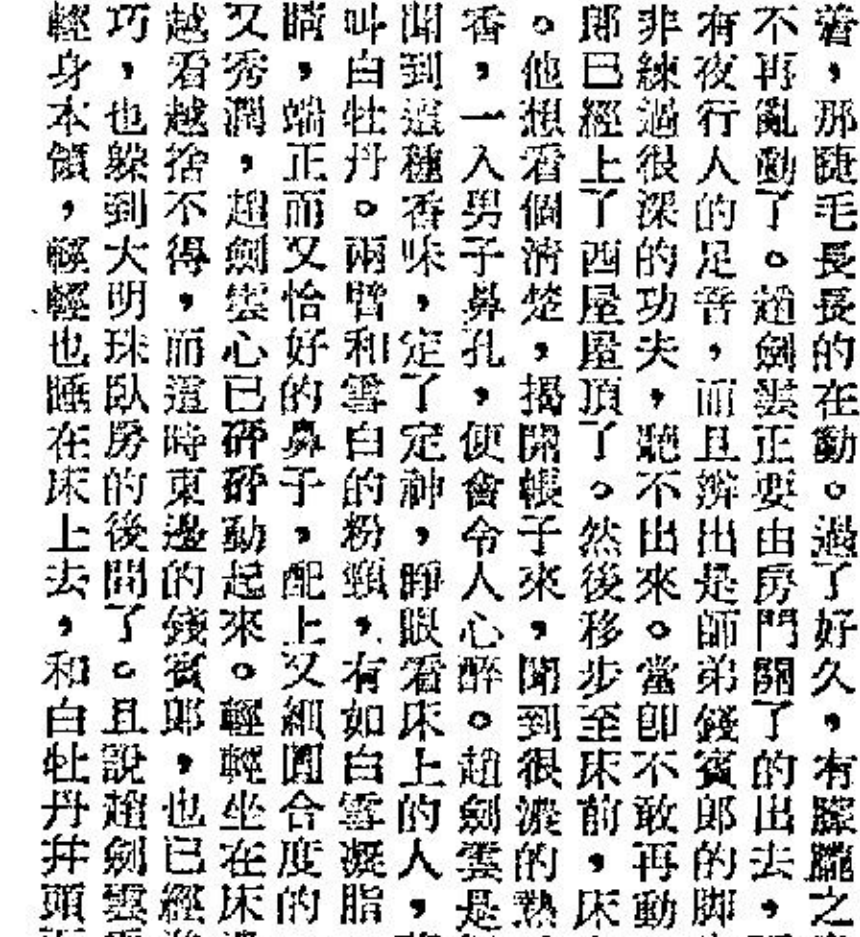 着，那睫毛長長的在動。過了好久，有朦朧之
不再亂動了。趙劍雲正要由房門關了的出去，
有夜行人的足音，而且辨出是師弟錢賓郎的脚
非練過很深的功夫，聽不出來。當卽不敢再動
郎已經上了西屋屋頂了。然後移步至床前，床
。他想看個淸楚，揭開帳子來，聞到很濃的熟
香，一入男子鼻孔，便會令人心醉。趙劍雲是
聞到這種香味，定了定神，睜眼看床上的人，
叫白牡丹。兩臂和雪白的粉頸，有如白雪凝脂
睛，端正而又恰好的鼻子，配上又細圓合度的
又秀潤，趙劍雲心已砰砰動起來。輕輕坐在床
越看越捨不得，而這時東邊的錢賓郎，也已經
巧，也躲到大明珠臥房的後間了。且說趙劍雲
輕身本領，輕輕也睡在床上去，和白牡丹幷頭